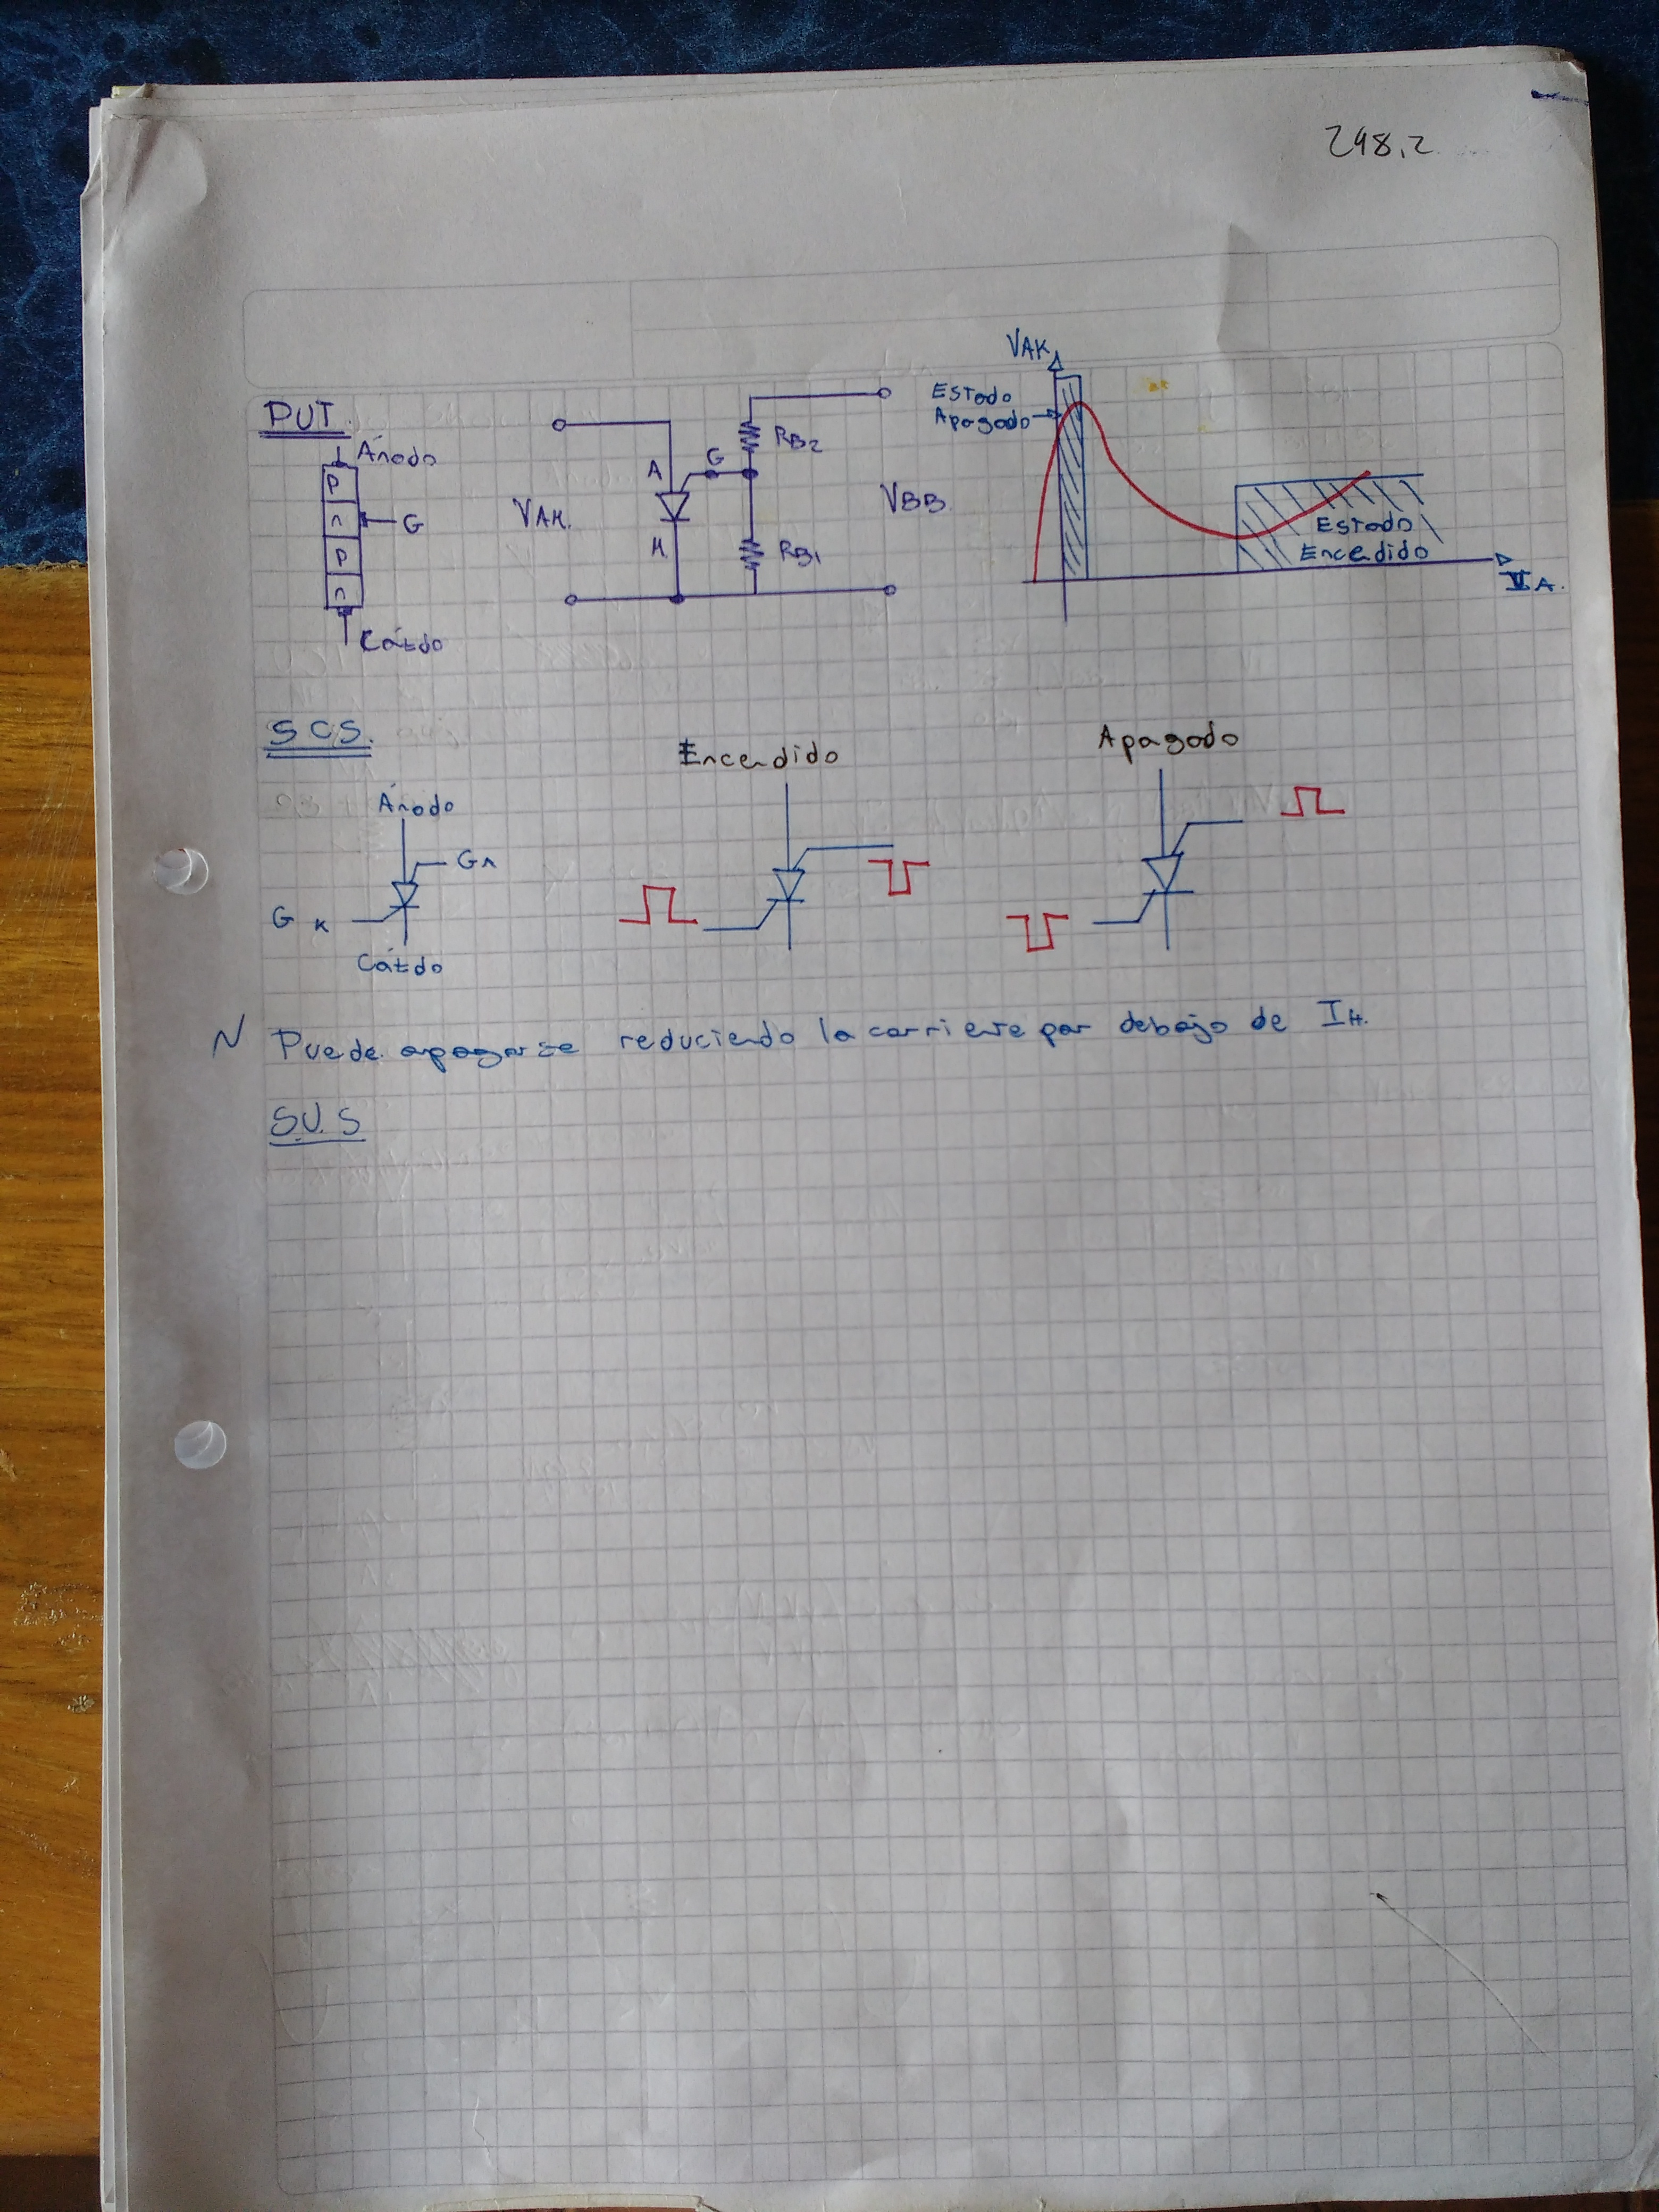 248.2
PUT.
Ánodo
P
n
G
P
n
Cátdo
VAK.
A
G
K
RB2
RB1
VBB.
VAK
Estado
Apagado
Estado
Encendido
IA.
SCS.
Ánodo
GA
GK
Cátdo
Encendido
Apagado
Puede apagarse reduciendo la corriente por debajo de IH.
S.U.S